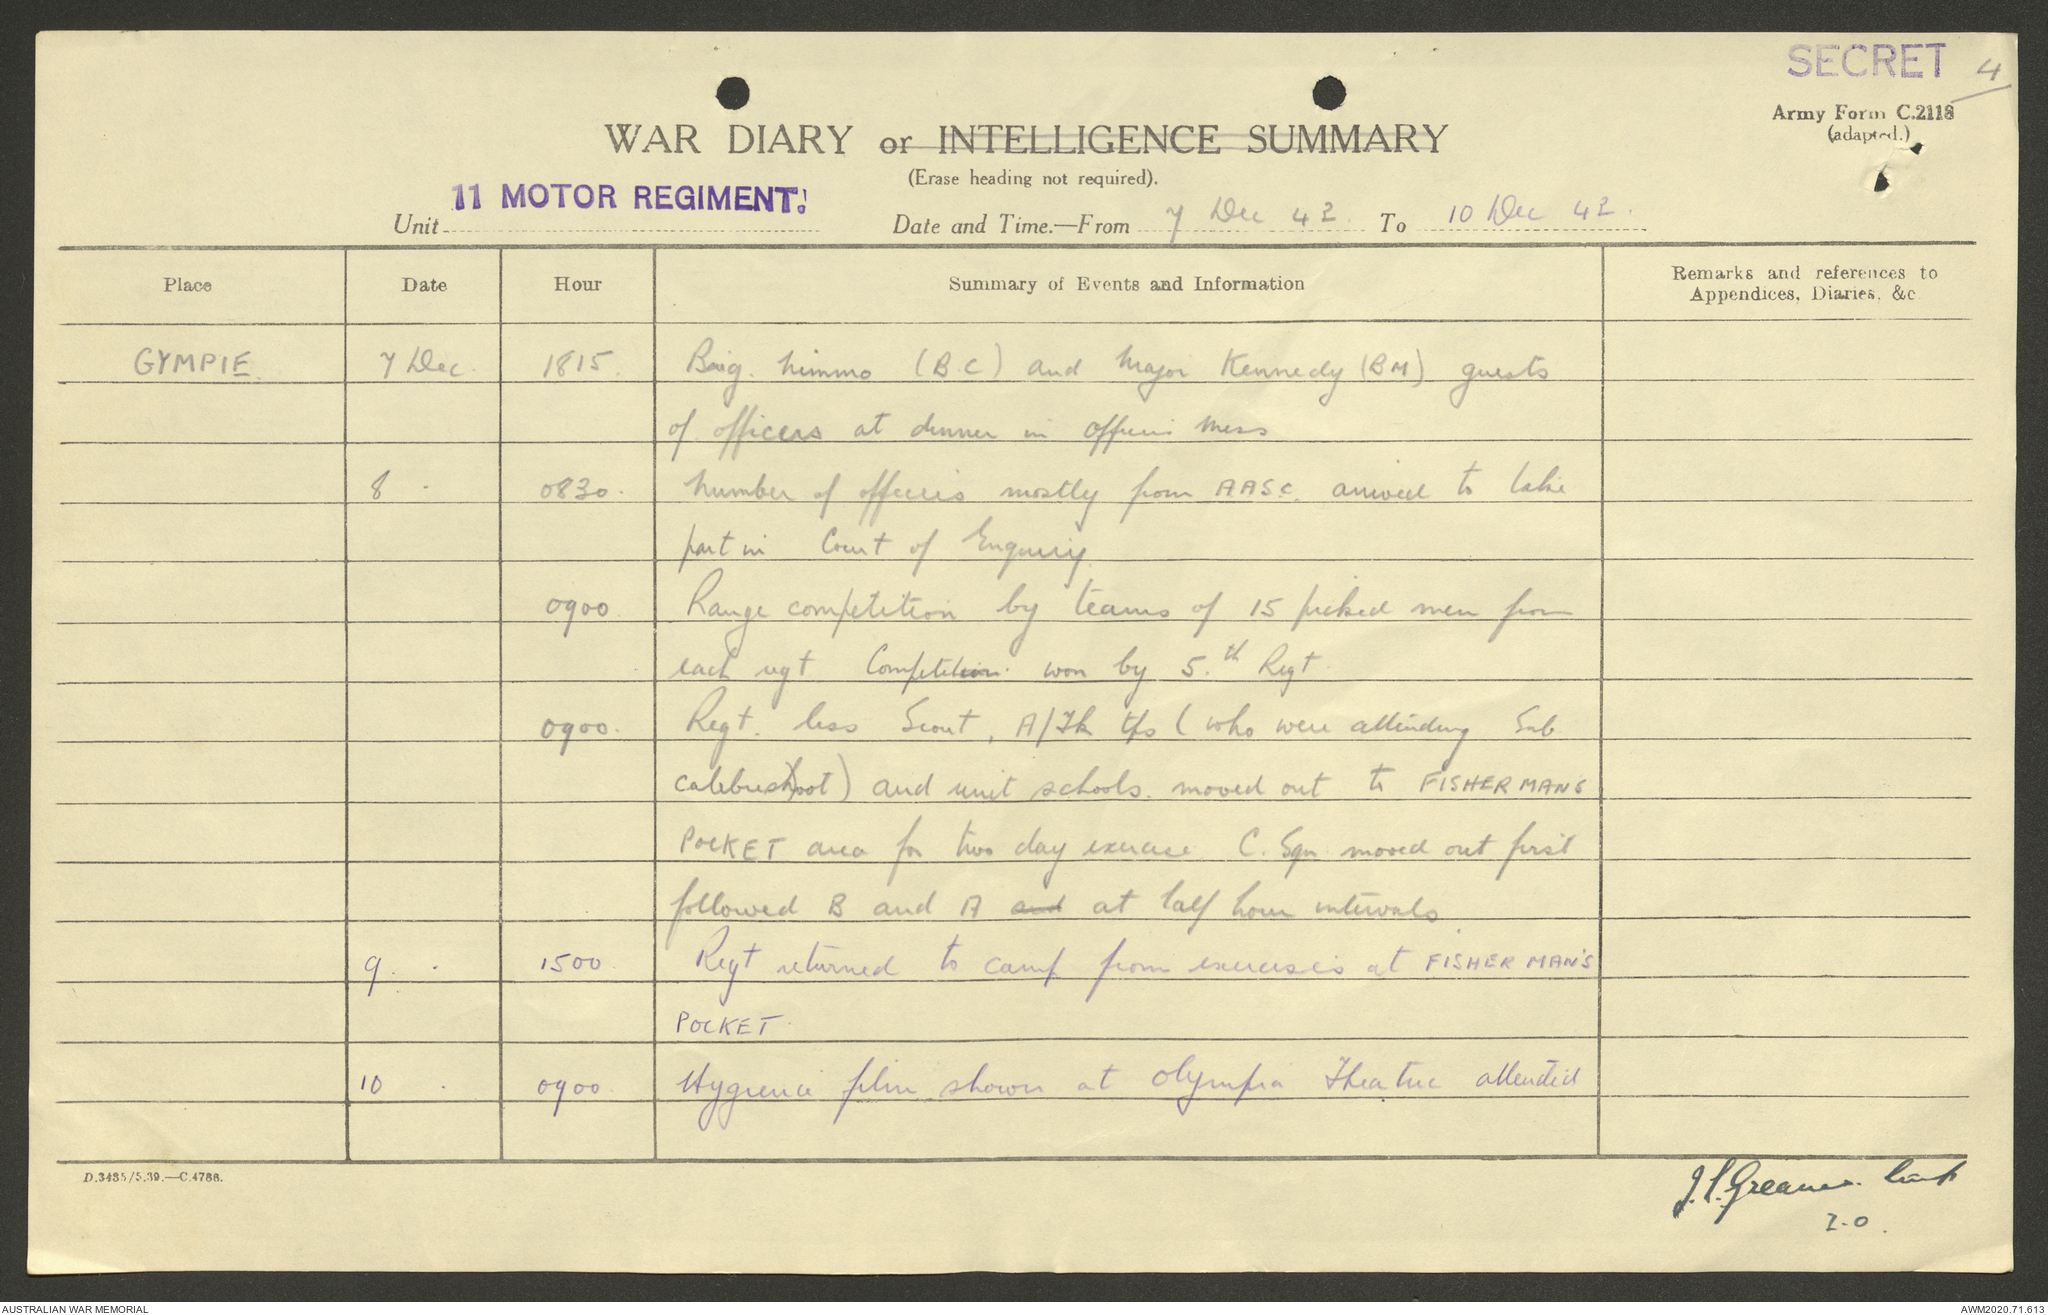 SECRET
4
Army Form C.2118
(adapted.)
WAR DIARY or INTELLIGENCE SUMMARY
(Erase heading not required).
Unit 11 MOTOR REGIMENT.
Date and Time.—From 7 Dec 42. To 10 Dec 42.
Place Date Hour Summary of Events and Information Remarks and references to
Appendices, Diaries, &c
GYMPIE 7 Dec. 1815. Brig. Nimmo (B.C) and Major Kennedy (BM) guests
of officers at dinner in officers mess
8 . 0830. Number of officers mostly from AASC. arrived to take
part in Court of Enquiry
0900 Range competition by teams of 15 picked men from
each regt Competition won by 5.th Regt.
0900. Regt. less Scout, A/Tk tps (who were attending Sub
calibre shoot) and unit schools moved out to FISHERMANS
POCKET area for two day exercise. C. Sqn moved out first
followed B and A and at half hour intervals
9 . 1500 Regt returned to camp from exercises at FISHERMAN'S
POCKET.
10 . 0900 Hygiene film shown at Olympia Theatre attended
D.3485/5.39.—C.4788.
I.O.
AUSTRALIAN WAR MEMORIAL
AWM2020.71.613